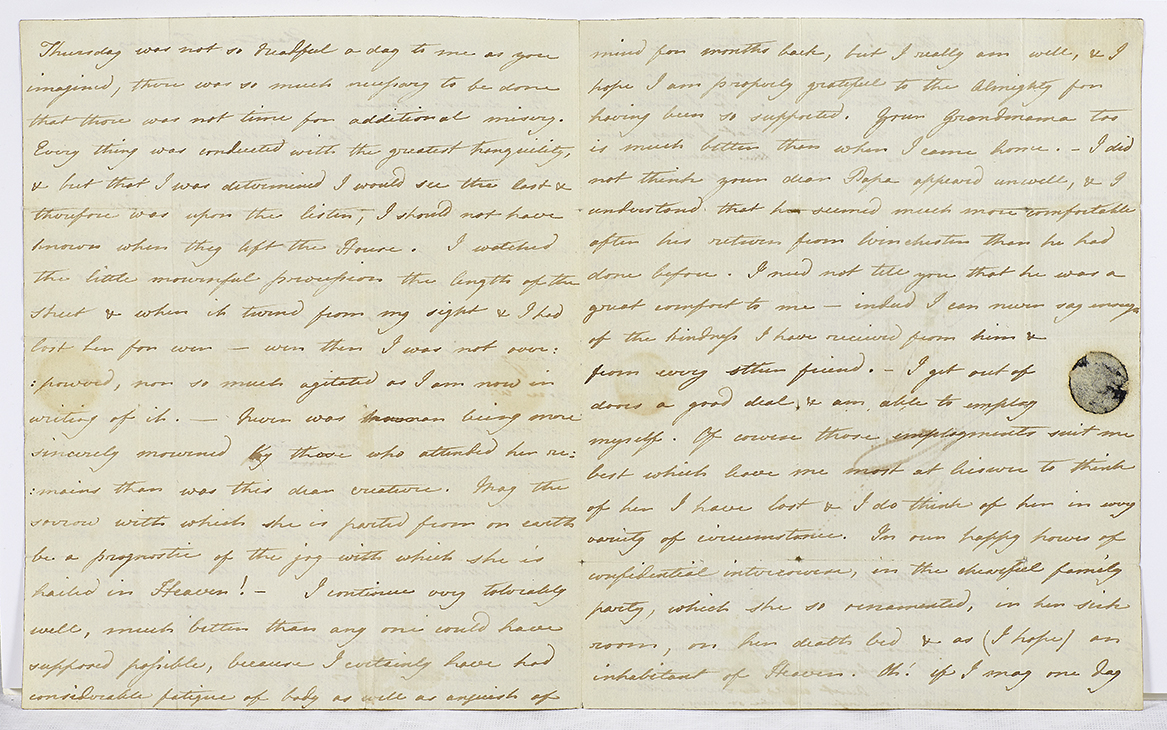 Thursday was not so dreadful a day to me as you
imagined, there was so much necessary to be done
that there was not time for additional misery.
Every thing was conducted with the greatest tranquility,
& but that I was determined I would see the last &
therefore was upon the listen, I should not have
known when they left the House. I watched
the little mournful procession the length of the
street & when it turned from my sight & I had
lost her for ever — even then I was not over:
:powered, nor so much agitated as I am now in
writing of it. — Never was human being more
sincerely mourned by those who attended her re:
:mains than was this dear creature. May the
sorrow with which she is parted from on earth
be a prognostic of the joy with which she is
hailed in Heaven! — I continue very tolerably
well, much better than any one could have
supposed possible, because I certainly have had
considerable fatigue of body as well as anguish of
mind for months back, but I really am well, & I
hope I am properly grateful to the Almighty for
having been so supported. Your Grandmama too
is much better than when I came home. — I did
not think your dear Papa appeared unwell, & I
understand that he seemed much more comfortable
after his return from Winchester than he had
done before. I need not tell you that he was a
great comfort to me — indeed I can never say enough
of the kindness I have received from him &
from every other friend. — I get out of
doors a good deal & am able to employ
myself. Of course those employments suit me
best which leave me most at leisure to think
of her I have lost & I do think of her in every
variety of circumstance. In our happy hours of
confidential intercourse, in the chearful family
party, which she so ornamented, in her sick
room, on her death bed & as (I hope) an
inhabitant of Heaven. Oh! if I may one day